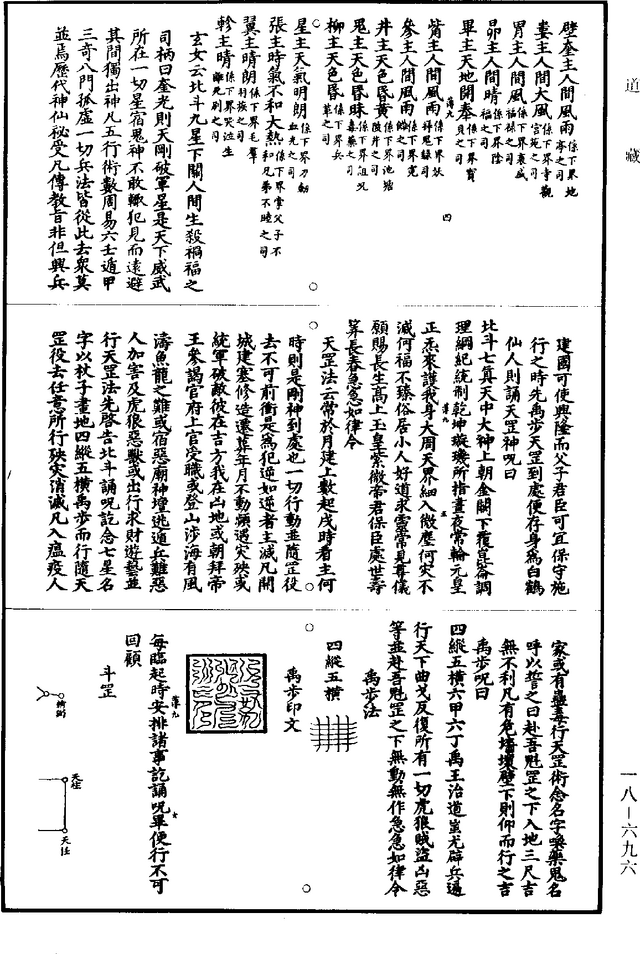 道藏
壁奎主人間風雨係下界地亭之司
婁主人間大風係下界寺觀宫苑之司
胃主人間風係下界衰盛福禄之司
昴主人間晴係下界陰福之司
畢主天地開泰係下界寶貝之司
觜主人間風雨係下界妖
參主人間風雨係下界冤
井主天色昏黄係下界池塘陂井之司
鬼主天色昏昧係下界詛咒毒藥之司
柳主天色昏係下界兵草之司
星主天氣明朗係下界刀劍血光之司
張主時氣不和大熱係下界掌父子不和兄弟不睦之司
翼主晴朗係下界毛羣羽族之司
軫主晴係下界哭泣生離死别之司
玄女云北斗九星下關人間生殺禍福之
司柄曰奎光則天剛破軍星是天下威武
所在一切星宿鬼神不敢輙犯見而遠避
其間獨出神凡五行術數周易六壬遁甲
三奇八門孤虚一切兵法皆從此去衆莫
並焉歷代神仙秘受凡傳教旨非但興兵
建國可使興隆而父子君臣可宜保守施
行之時先禹步天罡到處便存身爲白鶴
仙人則誦天罡神呪曰
北斗七真天中大神上朝金闕下覆崑崙調
理綱紀統制乾坤璇璣所指晝夜常輪元皇
正炁來護我身大周天界細入微塵何灾不
滅何福不臻俗居小人好道求靈常見尊儀
願賜長生高上玉皇紫微帝君保臣處世壽
筭長春急急如律令
天罡法云常於月建上數起戌時看主何
時則是剛神到處也一切行動並隨罡役
去不可前衝是爲犯逆如逆者主滅凡開
城建塞修造遷葬年月不動頻遇灾殃或
統軍破敵彼在吉方我在凶地或朝拜帝
王參謁官府上官受職或登山涉海有風
濤魚龍之難或宿惡廟神壇逃遁兵難惡
人加害及虎狼惡獸或出行求財遊藝並
行天罡法先啓告北斗誦呪訖念七星名
字以杖子畫地四縱五横禹步而行隨天
罡役去任意所行殃灾消滅凡入瘟疫人
家或有蠱毒行天罡術念名字喚藥鬼名
呼以誓之曰赴吾魁罡之下入地三尺吉
無不利凡有危墻壞壁下則仰而行之吉
禹步呪曰
四縱五横六甲六丁禹王治道蚩尤辟兵遍
行天下曲戈反復所有一切虎狼賊盜凶惡
等並赴吾魁罡之下無動無作急急如律令
禹步法
四縱五横
禹步印文
每臨起時安排諸事訖誦呪畢便行不可
回顧
斗罡
天柱
天任
一八－六九六